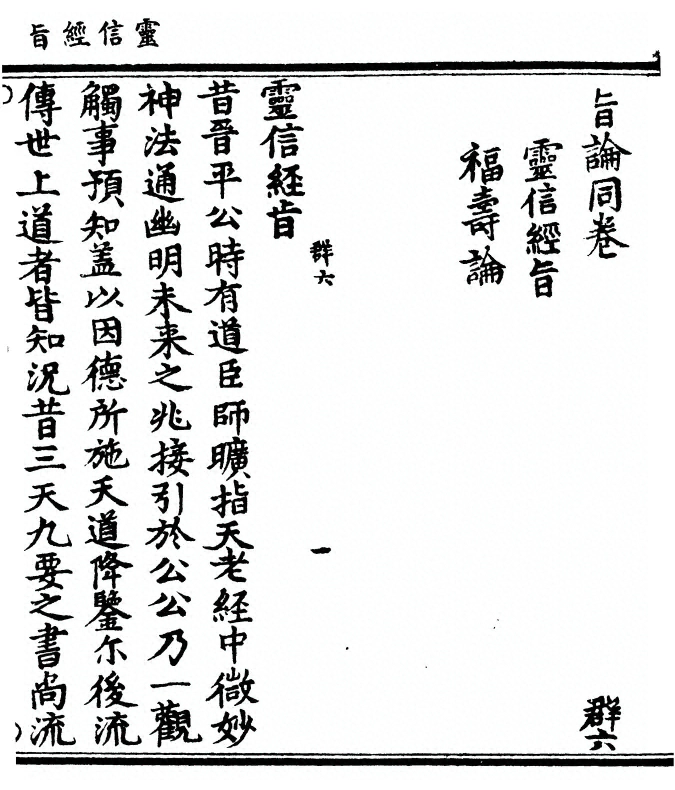 靈信經旨
旨論同卷 群六
靈信經旨
福壽論
群六 一
靈信經旨
昔晉平公時有道臣師曠指天老經中微妙
神法通幽明未来之兆接引於公公乃一觀
觸事預知盖以因德所施天道降鑒尓後流
傳世上道者皆知況昔三天九要之書尚流